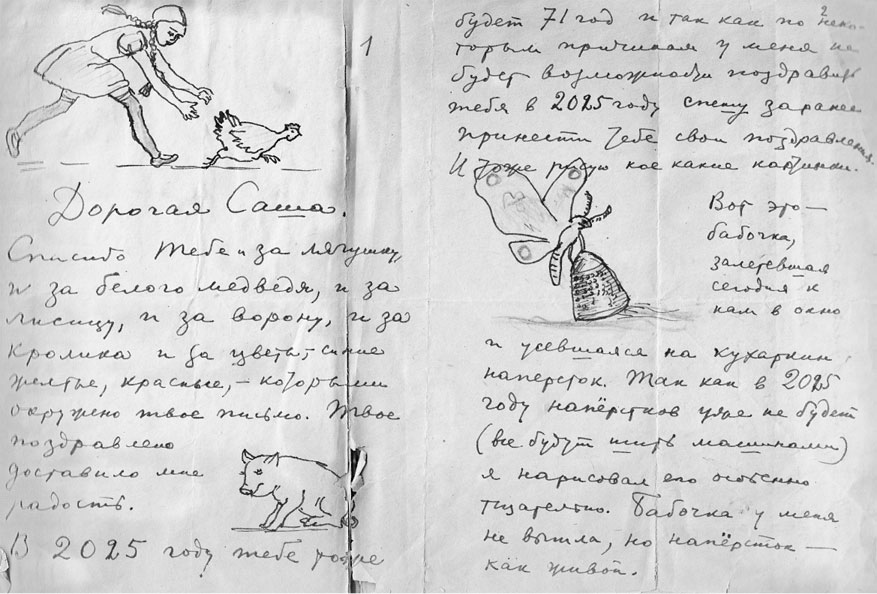 1
Дорогая Саша.
Спасибо тебе и за лягушку,
и за белого медведя, и за
лисицу, и за ворону, и за
кролика и за цветы, – синие
желтые, красные, – которыми
окружено твое письмо. Твое
поздравлено
доставило мне
радость.
В 2025 году тебе тоже
2
будет 71 год и так как по неко-
торым причинам у меня не
будет возможности поздравить
тебя в 2025 году спешу заранее
принести тебе свои поздравления.
И тоже рисую кое какие картинки.
Вот это —
бабочка,
залетевшая
сегодня к
нам в окно
и усевшаяся на кухаркин
наперсток. Так как в 2025
году напёрстков уже не будет
(все будут шить машинами)
я нарисовал его особенно
тщательно. Бабочка у меня
не вышла, но напёрсток —
как живой.